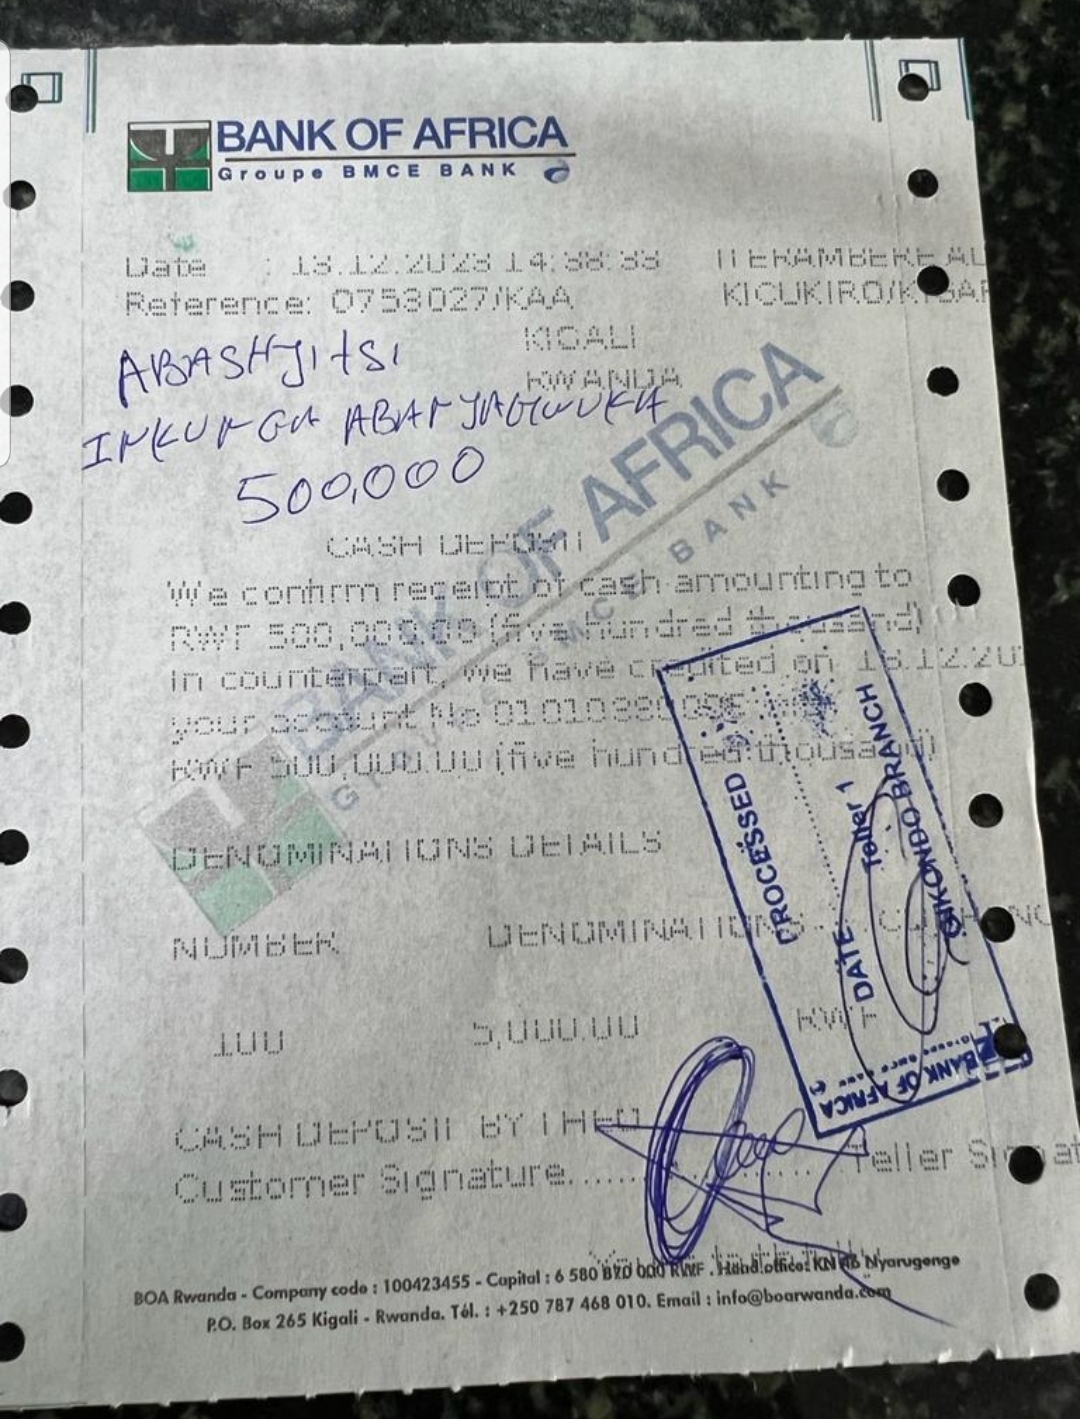 BANK OF AFRICA
Groupe BMCE BANK
Date : 13.12.2023 14:38:33
Reference: 0753027/KAA KICUKIRO/
KIGALI
RWANDA
ABASHYITSI
INKUNGA
500,000
CASH DEPOSIT
We confirm receipt of cash amounting to
RWF 500,000.00 (five hundred thousand)
In counterpart, we have credited on 13.12.20
your account No
RWF 500,000.00 (five hundred thousand)
DENOMINATIONS DETAILS
NUMBER DENOMINATIONS
100 5,000.00 RWF
CASH DEPOSIT BY THEO
Customer Signature............ Teller Signat
BOA Rwanda - Company code : 100423455 - Capital : 6 580 820 000 RWF . Head office: KN Nyarugenge
P.O. Box 265 Kigali - Rwanda. Tél. : +250 787 468 010. Email : info@boarwanda.com
BANK OF AFRICA
GROUPE BMCE BANK
PROCESSED
DATE Teller 1
GIKONDO BRANCH
BANK OF AFRICA